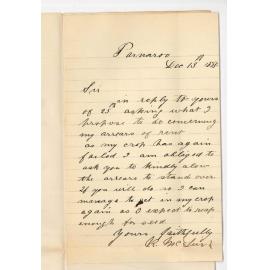 Parnaroo
Dec 13th
Sir
in reply to yours
of 25th asking what I
propose to do concerning
my arrears of rent
as my crop has again
failed I am obliged to
ask you to kindly alow
the arrears to stand over
if you will do so I can
manage to get in my crop
again as I expect to reap
enough for seed
Yours faithfully